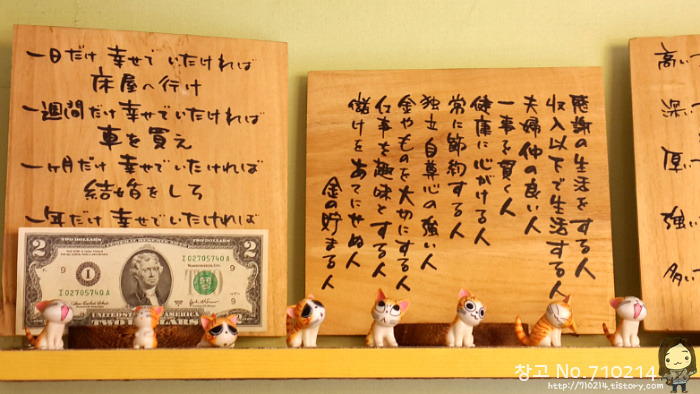 一日だけ 幸せで いたければ
床屋へ行け
一週間だけ 幸せでいたければ
車を買え
一ヶ月だけ 幸せでいたければ
結婚をしろ
一年だけ 幸せでいたければ
感謝の生活をする人
収入以下で生活する人
夫婦仲の良い人
一事を貫く人
健康に心がける人
常に節約する人
独立自尊心の強い人
金やものを大切にする人
仕事を趣味とする人
儲けをあてにせぬ人
金の貯まる人
高い
深い
厚い
強い
多い
2 2
I 02705740 A
9 I 9
I 02705740 A
2 TWO DOLLARS
창고 No.710214
http://710214.tistory.com/